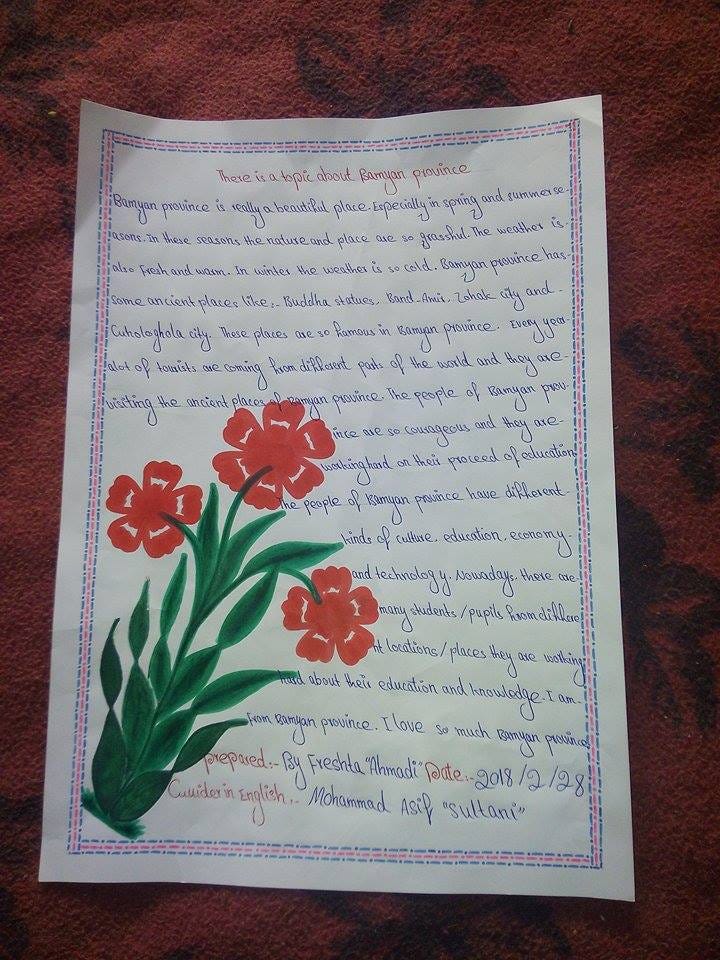 There is a topic about Bamyan province
Bamyan province is really a beautiful place. Especially in spring and summer se-
asons. In these seasons the nature and place are so grassful. The weather is-
also Fresh and warm. In winter the weather is so cold. Bamyan province has-
some ancient places like:- Buddha statues, Band-Amir, Zohak city and-
Cuhologhola city. These places are so famous in Bamyan province. Every year-
alot of tourists are coming from different parts of the world and they are-
visiting the ancient places of Bamyan province. The people of Bamyan prov-
ince are so courageous and they are-
working hard on their proceed of education
The people of Bamyan province have different-
kinds of culture, education, economy-
and technology. Nowadays, there are-
many students/pupils from differe
nt locations/places they are working
hard about their education and knowledge. I am-
From Bamyan province. I love so much Bamyan province
prepared:- By Freshta "Ahmadi" Date:- 2018/2/28
in English:- Mohammad Asif "Sultani"